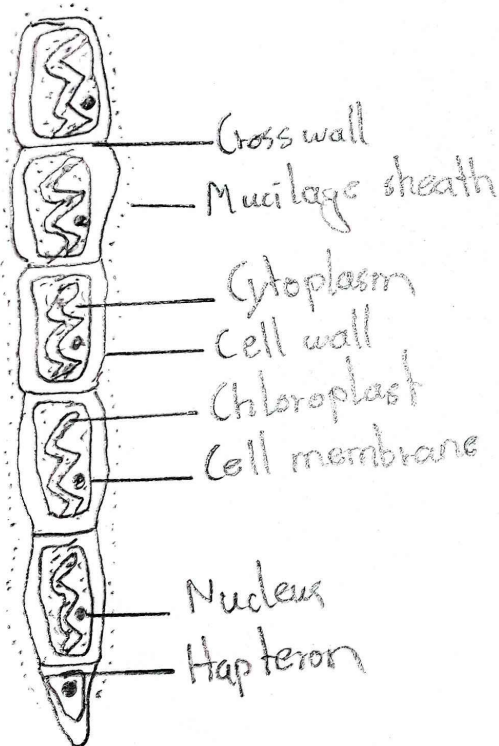 Cross wall
Mucilage sheath
Cytoplasm
Cell wall
Chloroplast
Cell membrane
Nucleus
Hapteron